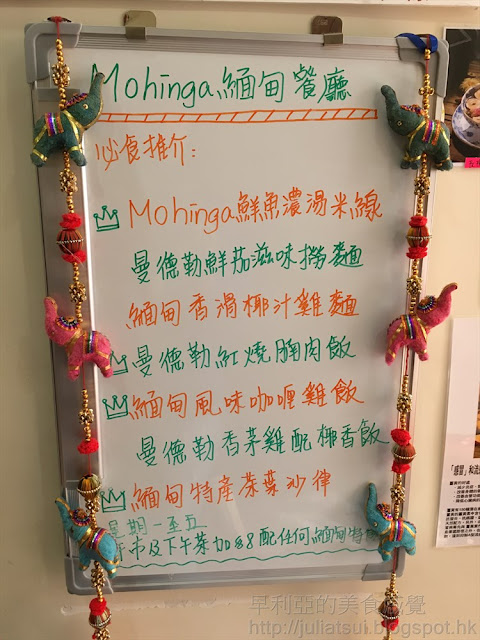 Mohinga緬甸餐廳
必食推介:
Mohinga鮮魚濃湯米線
曼德勒鮮茄滋味撈麵
緬甸香滑椰汁雞麵
曼德勒紅燒腩肉飯
緬甸風味咖喱雞飯
曼德勒香茅雞配椰香飯
緬甸特產茶葉沙律
星期一至五
市及下午茶加$8配任何緬甸特
早利亞的美食感覺
http://juliatsui.blogspot.hk